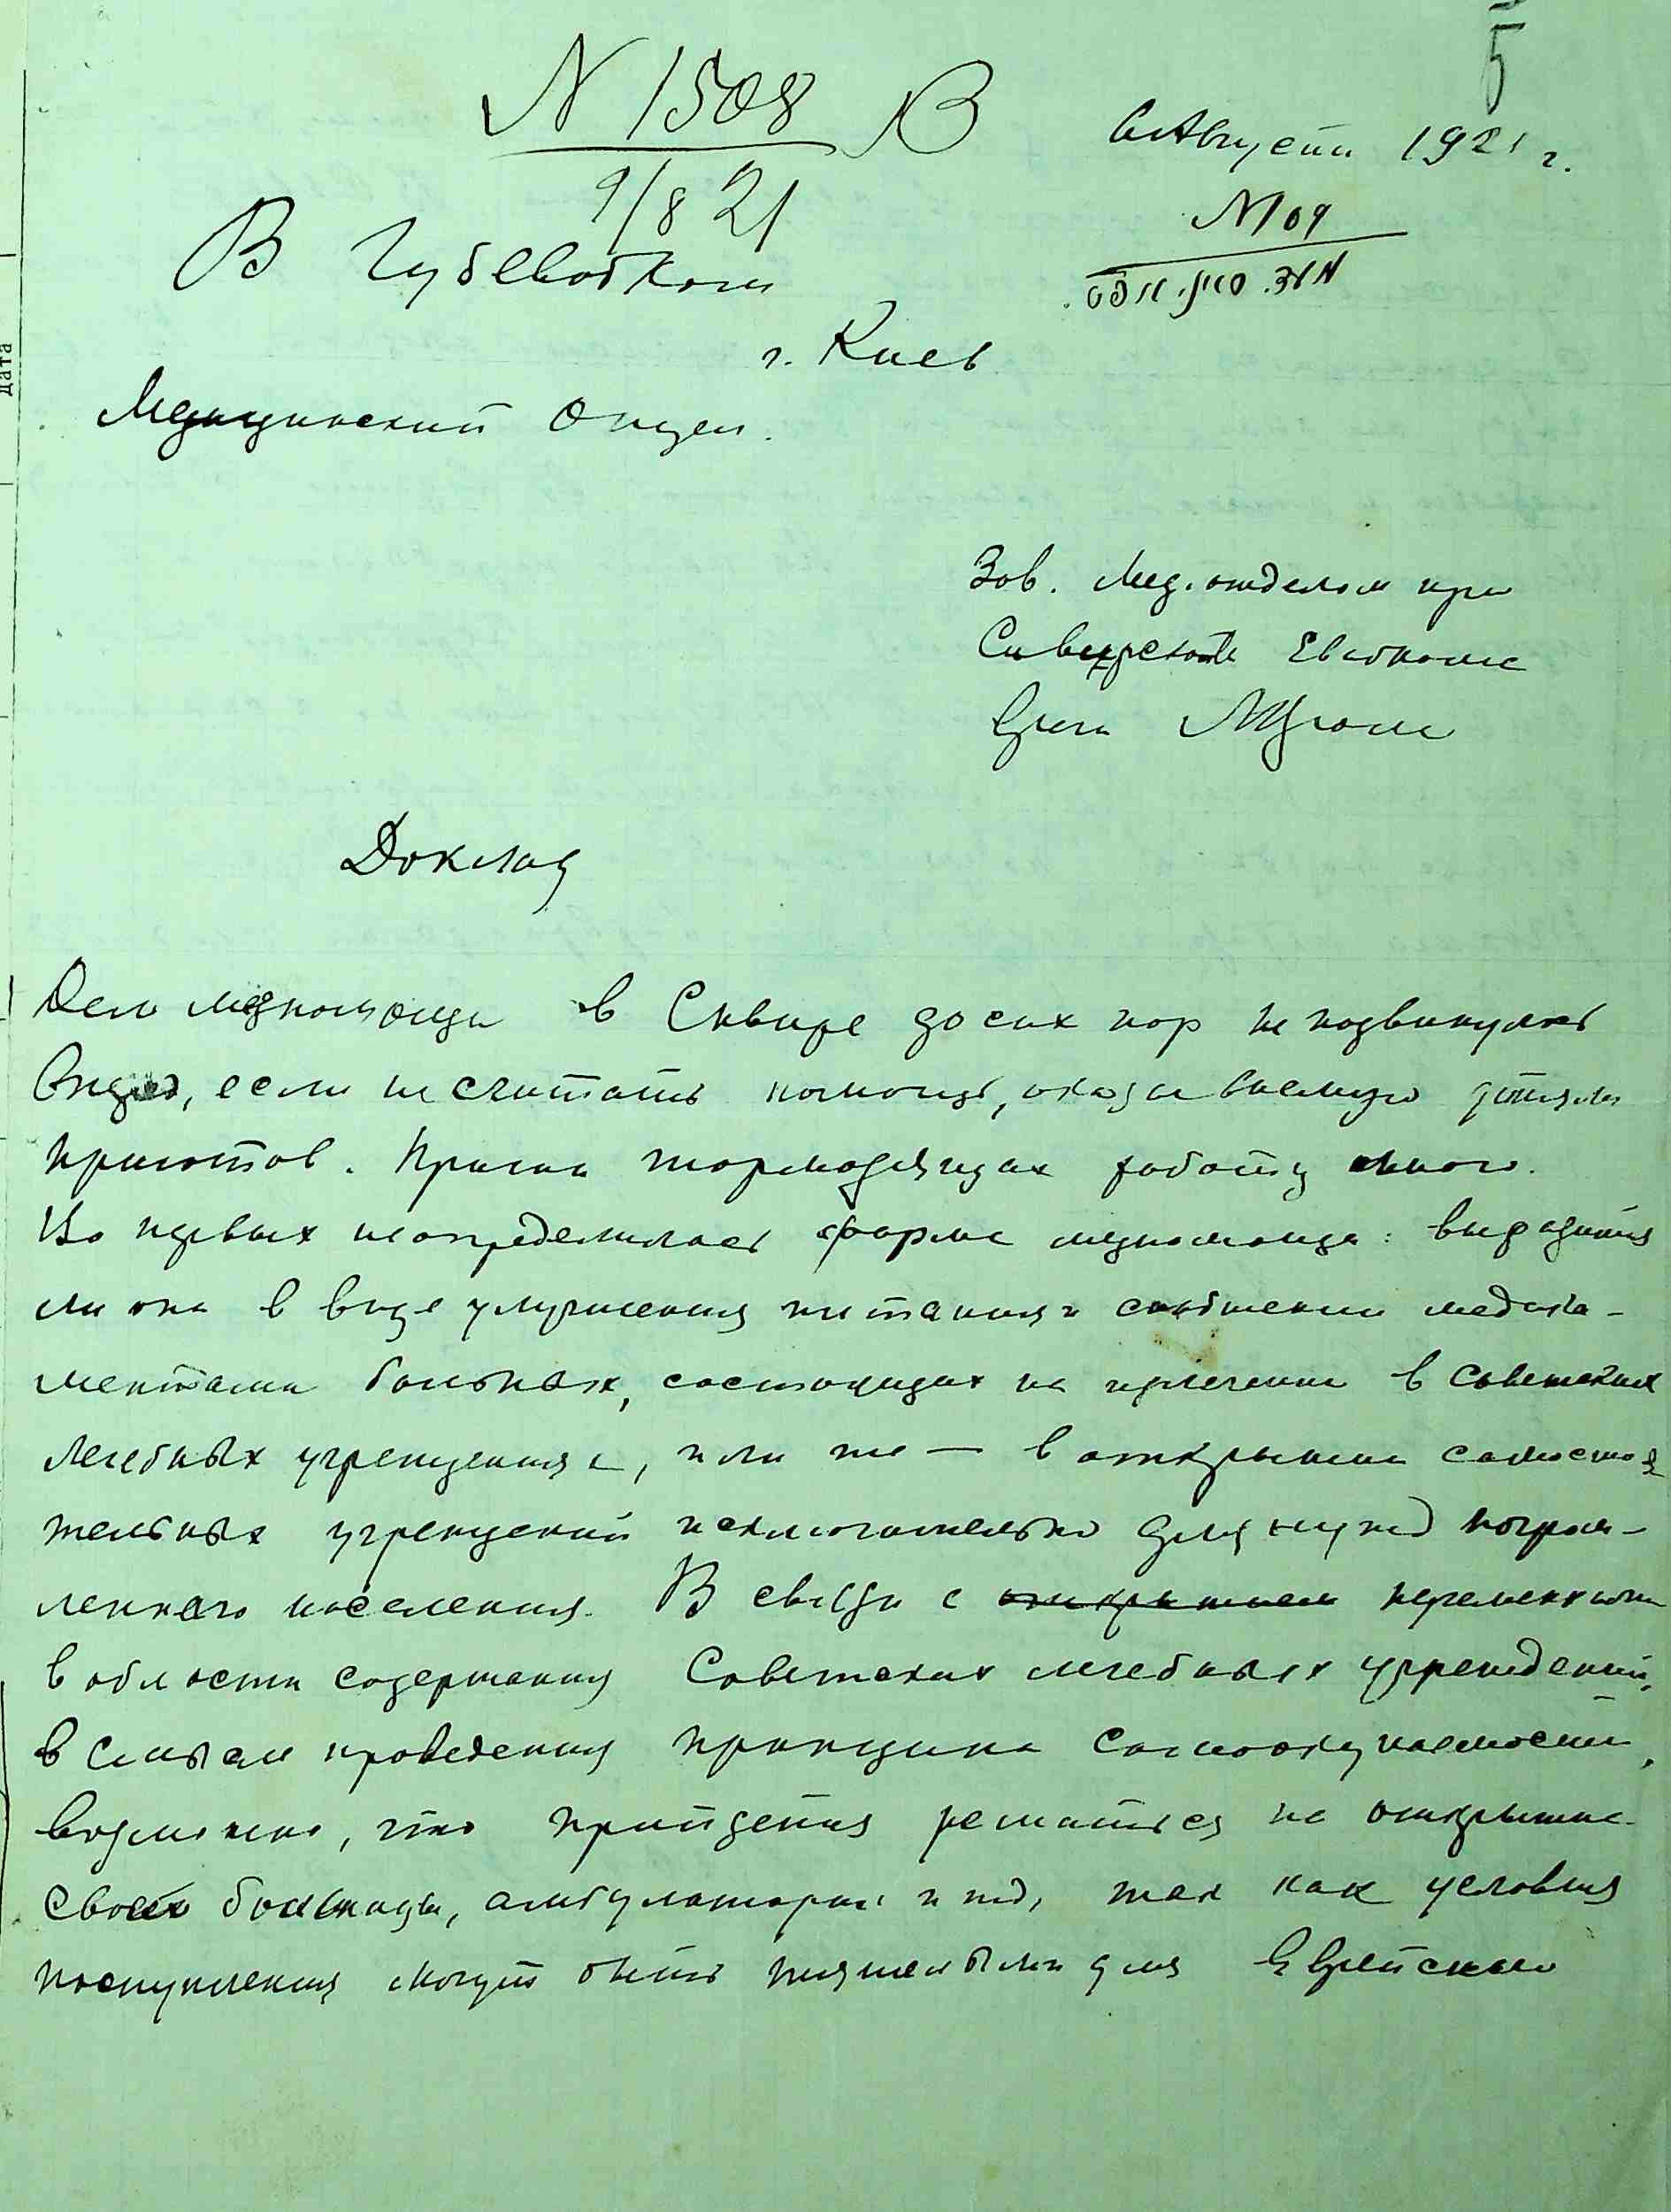 5
N 1508 В
9/8 21
6 Августа 1921 г.
N 109
В Губевобком
г. Киев
дата
Медицинский Отдел.
Зав. Мед. отделом при
Сквирском Евобкоме
Врача
Доклад
Дело медпомощи в Сквире до сих пор не подвинулось
вперед, если не считать помощи, оказываемую детям
приютов. Причин тормозящих работу много.
Во первых не определилась форма медпомощи: выразится
ли она в виде улучшения питания и снабжении медика-
ментами больных, состоящих на излечении в Советских
лечебных учреждениях, или же — в открытии самостоя
тельных учреждений исключительно для нужд погром-
ленного населения. В связи с открытием переменами
в области содержания Советских лечебных учреждений,
в смысле проведения принципа самоокупаемости,
возможно, что прийдется решиться на открытие
своей больницы, амбулатории и т.д., так как условия
поступления могут быть тяжелыми для Еврейского